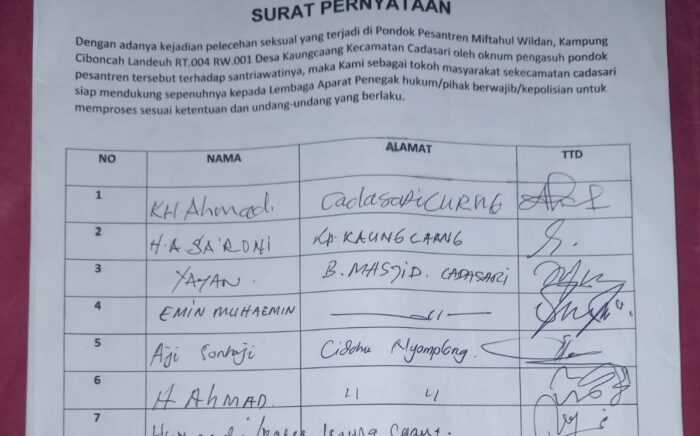 SURAT PERNYATAAN
Dengan adanya kejadian pelecehan seksual yang terjadi di Pondok Pesantren Miftahul Wildan, Kampung
Ciboncah Landeuh RT.004 RW.001 Desa Kaungcaang Kecamatan Cadasari oleh oknum pengasuh pondok
pesantren tersebut terhadap santriawatinya, maka Kami sebagai tokoh masyarakat sekecamatan cadasari
siap mendukung sepenuhnya kepada Lembaga Aparat Penegak hukum/pihak berwajib/kepolisian untuk
memproses sesuai ketentuan dan undang-undang yang berlaku.
NO NAMA ALAMAT TTD
1 KH Ahmadi Cadasari
2 H.A SA'RONI KP. KAUNG CAANG
3 YAYAN. B. MASJID. CADASARI
4 EMIN MUHAEMIN
5 Aji
6 H AHMAD
7